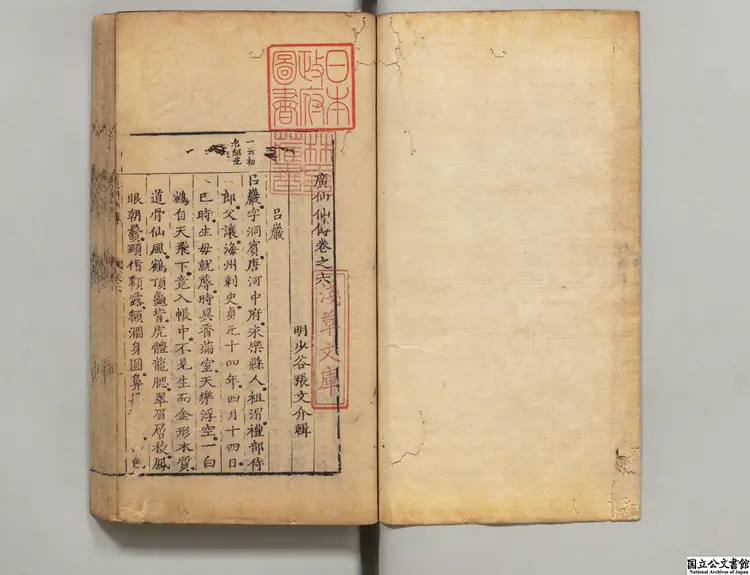 日本
政府
圖書
淺草文庫
廣列仙傳卷之六
明少谷張文介輯
呂巖
一云初
名紹先
呂巖字洞賓唐河中府永樂縣人祖渭禮部侍
郎父讓海州刺史貞元十四年四月十四日
巳時生母就蓐時異香滿室天樂浮空一白
鶴自天飛下竟入帳中不見生而金形木質
道骨仙風鶴頂龜背虎體龍腮翠眉層稜鳳
眼朝鬢頸脩顴露額濶身圓鼻 色
国立公文書館
National Archives of Japan